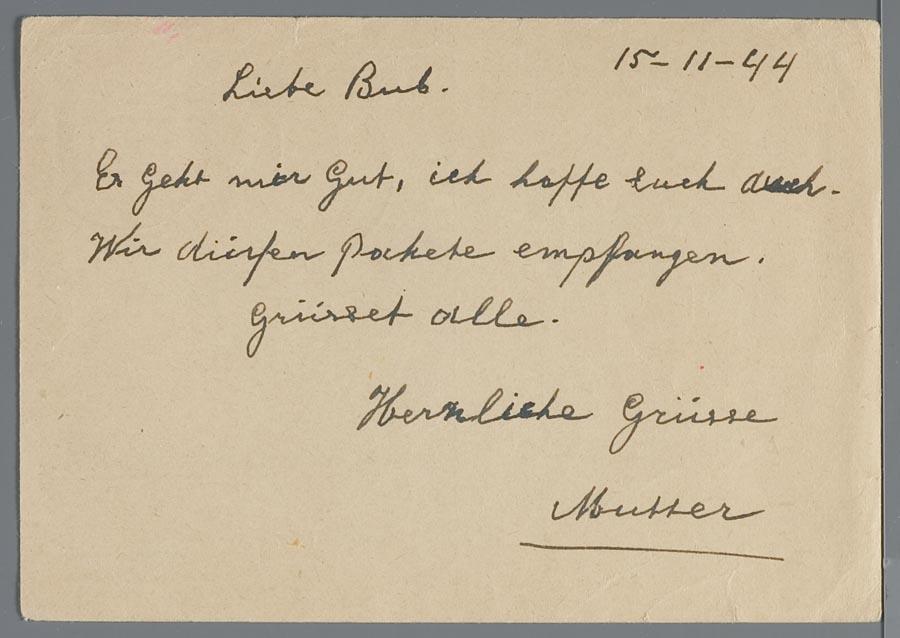 15-11-44
Liebe Bub.
Er geht mir Gut, ich hoffe Euch auch.
Wir dürfen Pakete empfangen.
Grüsset alle.
Hernliche Grüsse
Mutter